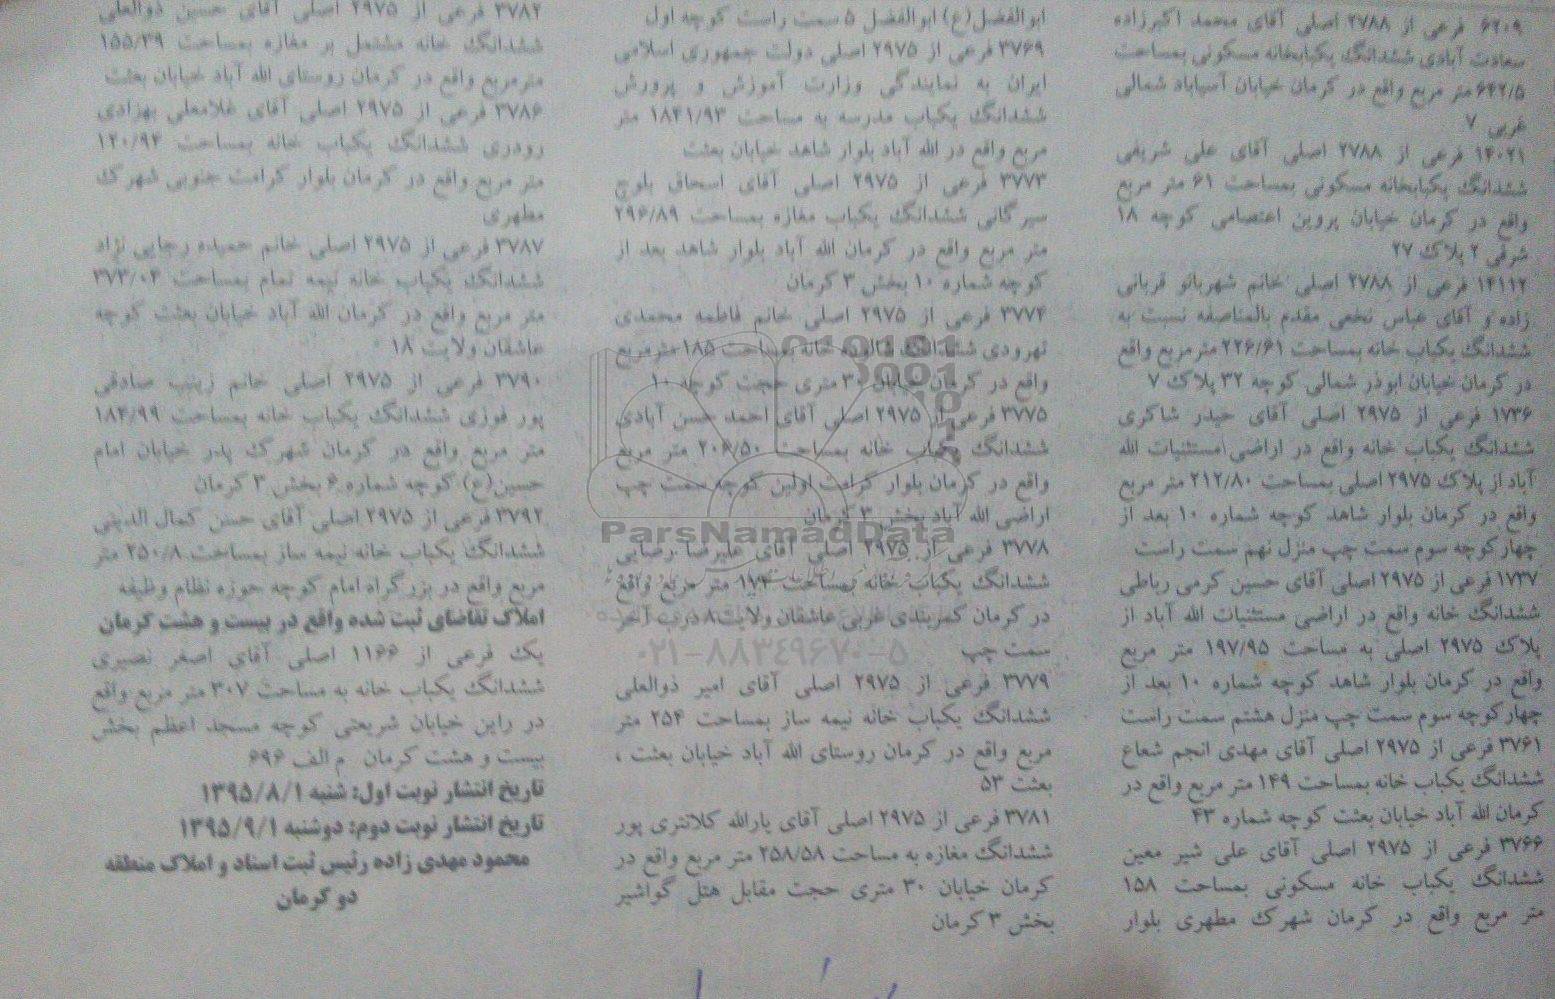 ۶۲۰۹ فرعی از ۲۷۸۸ اصلی آقای محمد اکبرزاده
سعادت آبادی ششدانگ یکبابخانه مسکونی بمساحت
۶۴۲/۵ متر مربع واقع در کرمان خیابان آسیاباد شمالی
غربی ۷
۱۴۰۲۱ فرعی از ۲۷۸۸ اصلی آقای علی شریفی
ششدانگ یکبابخانه مسکونی بمساحت ۶۱ متر مربع
واقع در کرمان خیابان پروین اعتصامی کوچه ۱۸
شرقی ۲ پلاک ۲۷
۱۴۱۱۲ فرعی از ۲۷۸۸ اصلی خانم شهربانو قربانی
زاده و آقای عباس نخعی مقدم بالمناصفه نسبت به
ششدانگ یکباب خانه بمساحت ۲۲۶/۶۱ مترمربع واقع
در کرمان خیابان ابوذر شمالی کوچه ۳۲ پلاک ۷
۱۷۳۶ فرعی از ۲۹۷۵ اصلی آقای حیدر شاکری
ششدانگ یکباب خانه واقع در اراضی مستثنیات الله
آباد از پلاک ۲۹۷۵ اصلی بمساحت ۲۱۲/۸۰ متر مربع
واقع در کرمان بلوار شاهد کوچه شماره ۱۰ بعد از
چهارکوچه سوم سمت چپ منزل نهم سمت راست
۱۷۳۷ فرعی از ۲۹۷۵ اصلی آقای حسین کرمی رباطی
ششدانگ خانه واقع در اراضی مستثنیات الله آباد از
پلاک ۲۹۷۵ اصلی به مساحت ۱۹۷/۹۵ متر مربع
واقع در کرمان بلوار شاهد کوچه شماره ۱۰ بعد از
چهارکوچه سوم سمت چپ منزل هشتم سمت راست
۳۷۶۱ فرعی از ۲۹۷۵ اصلی آقای مهدی انجم شعاع
ششدانگ یکباب خانه بمساحت ۱۴۹ متر مربع واقع در
کرمان الله آباد خیابان بعثت کوچه شماره ۴۳
۳۷۶۶ فرعی از ۲۹۷۵ اصلی آقای علی شیر معین
ششدانگ یکباب خانه مسکونی بمساحت ۱۵۸
متر مربع واقع در کرمان شهرک مطهری بلوار
ابوالفضل(ع) ابوالفضل ۵ سمت راست کوچه اول
۳۷۶۹ فرعی از ۲۹۷۵ اصلی دولت جمهوری اسلامی
ایران به نمایندگی وزارت آموزش و پرورش
ششدانگ یکباب مدرسه به مساحت ۱۸۴۱/۹۳ متر
مربع واقع در الله آباد بلوار شاهد خیابان بعثت
۳۷۷۳ فرعی از ۲۹۷۵ اصلی آقای اسحاق بلوچ
سیرگانی ششدانگ یکباب مغازه بمساحت ۲۹۶/۸۹
متر مربع واقع در کرمان الله آباد بلوار شاهد بعد از
کوچه شماره ۱۰ بخش ۳ کرمان
۳۷۷۴ فرعی از ۲۹۷۵ اصلی خانم فاطمه محمدی
تهرودی ششدانگ خانه بمساحت ۱۸۵ مترمربع
واقع در کرمان خیابان ۳۰ متری حجت کوچه ۱۰
۳۷۷۵ فرعی از ۲۹۷۵ اصلی آقای احمد حسن آبادی
ششدانگ یکباب خانه بمساحت ۲۰۶/۵۰ متر مربع
واقع در کرمان بلوار کرامت اولین کوچه سمت چپ
اراضی الله آباد بخش ۳ کرمان
ParsNamadData
۳۷۷۸ فرعی از ۲۹۷۵ اصلی آقای علیرضا رضایی
ششدانگ یکباب خانه بمساحت متر مربع واقع
در کرمان کمربندی غربی عاشقان ولایت ۸ درب آخر
سمت چپ
۰۲۱-۸۸۳۴۹۶۷۰-۵
۳۷۷۹ فرعی از ۲۹۷۵ اصلی آقای امیر ذوالعلی
ششدانگ یکباب خانه نیمه ساز بمساحت ۲۵۴ متر
مربع واقع در کرمان روستای الله آباد خیابان بعثت ،
بعثت ۵۳
۳۷۸۱ فرعی از ۲۹۷۵ اصلی آقای یارالله کلانتری پور
ششدانگ مغازه به مساحت ۲۵۸/۵۸ متر مربع واقع در
کرمان خیابان ۳۰ متری حجت مقابل هتل گواشیر
بخش ۳ کرمان
۳۷۸۲ فرعی از ۲۹۷۵ اصلی آقای حسین ذوالعلی
ششدانگ خانه مشتمل بر مغازه بمساحت ۱۵۵/۳۹
مترمربع واقع در کرمان روستای الله آباد خیابان بعثت
۳۷۸۶ فرعی از ۲۹۷۵ اصلی آقای غلامعلی بهزادی
رودری ششدانگ یکباب خانه بمساحت ۱۲۰/۹۴
متر مربع واقع در کرمان بلوار کرامت جنوبی شهرک
مطهری
۳۷۸۷ فرعی از ۲۹۷۵ اصلی خانم حمیده رجایی نژاد
ششدانگ یکباب خانه نیمه تمام بمساحت ۳۷۳/۰۴
متر مربع واقع در کرمان الله آباد خیابان بعثت کوچه
عاشقان ولایت ۱۸
۳۷۹۰ فرعی از ۲۹۷۵ اصلی خانم زینب صادقی
پور فوزی ششدانگ یکباب خانه بمساحت ۱۸۴/۹۹
متر مربع واقع در کرمان شهرک پدر خیابان امام
حسین(ع) کوچه شماره ۶ بخش ۳ کرمان
۳۷۹۲ فرعی از ۲۹۷۵ اصلی آقای حسن کمال الدینی
ششدانگ یکباب خانه نیمه ساز بمساحت ۲۵۰/۸ متر
مربع واقع در بزرگراه امام کوچه حوزه نظام وظیفه
املاک تقاضای ثبت شده واقع در بیست و هشت کرمان
یک فرعی از ۱۱۶۶ اصلی آقای اصغر نصیری
ششدانگ یکباب خانه به مساحت ۳۰۷ متر مربع واقع
در راین خیابان شریعتی کوچه مسجد اعظم بخش
بیست و هشت کرمان م الف ۶۹۶
تاریخ انتشار نوبت اول: شنبه ۱۳۹۵/۸/۱
تاریخ انتشار نوبت دوم: دوشنبه ۱۳۹۵/۹/۱
محمود مهدی زاده رئیس ثبت اسناد و املاک منطقه
دو کرمان